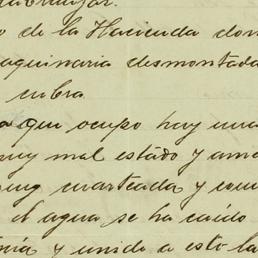 o de la Hacienda don
aquinaria desmontada
cubra
a que ocupo hoy una
muy mal estado y ame
muy cuarteada y com
el agua se ha caido
nia y unido a esto la